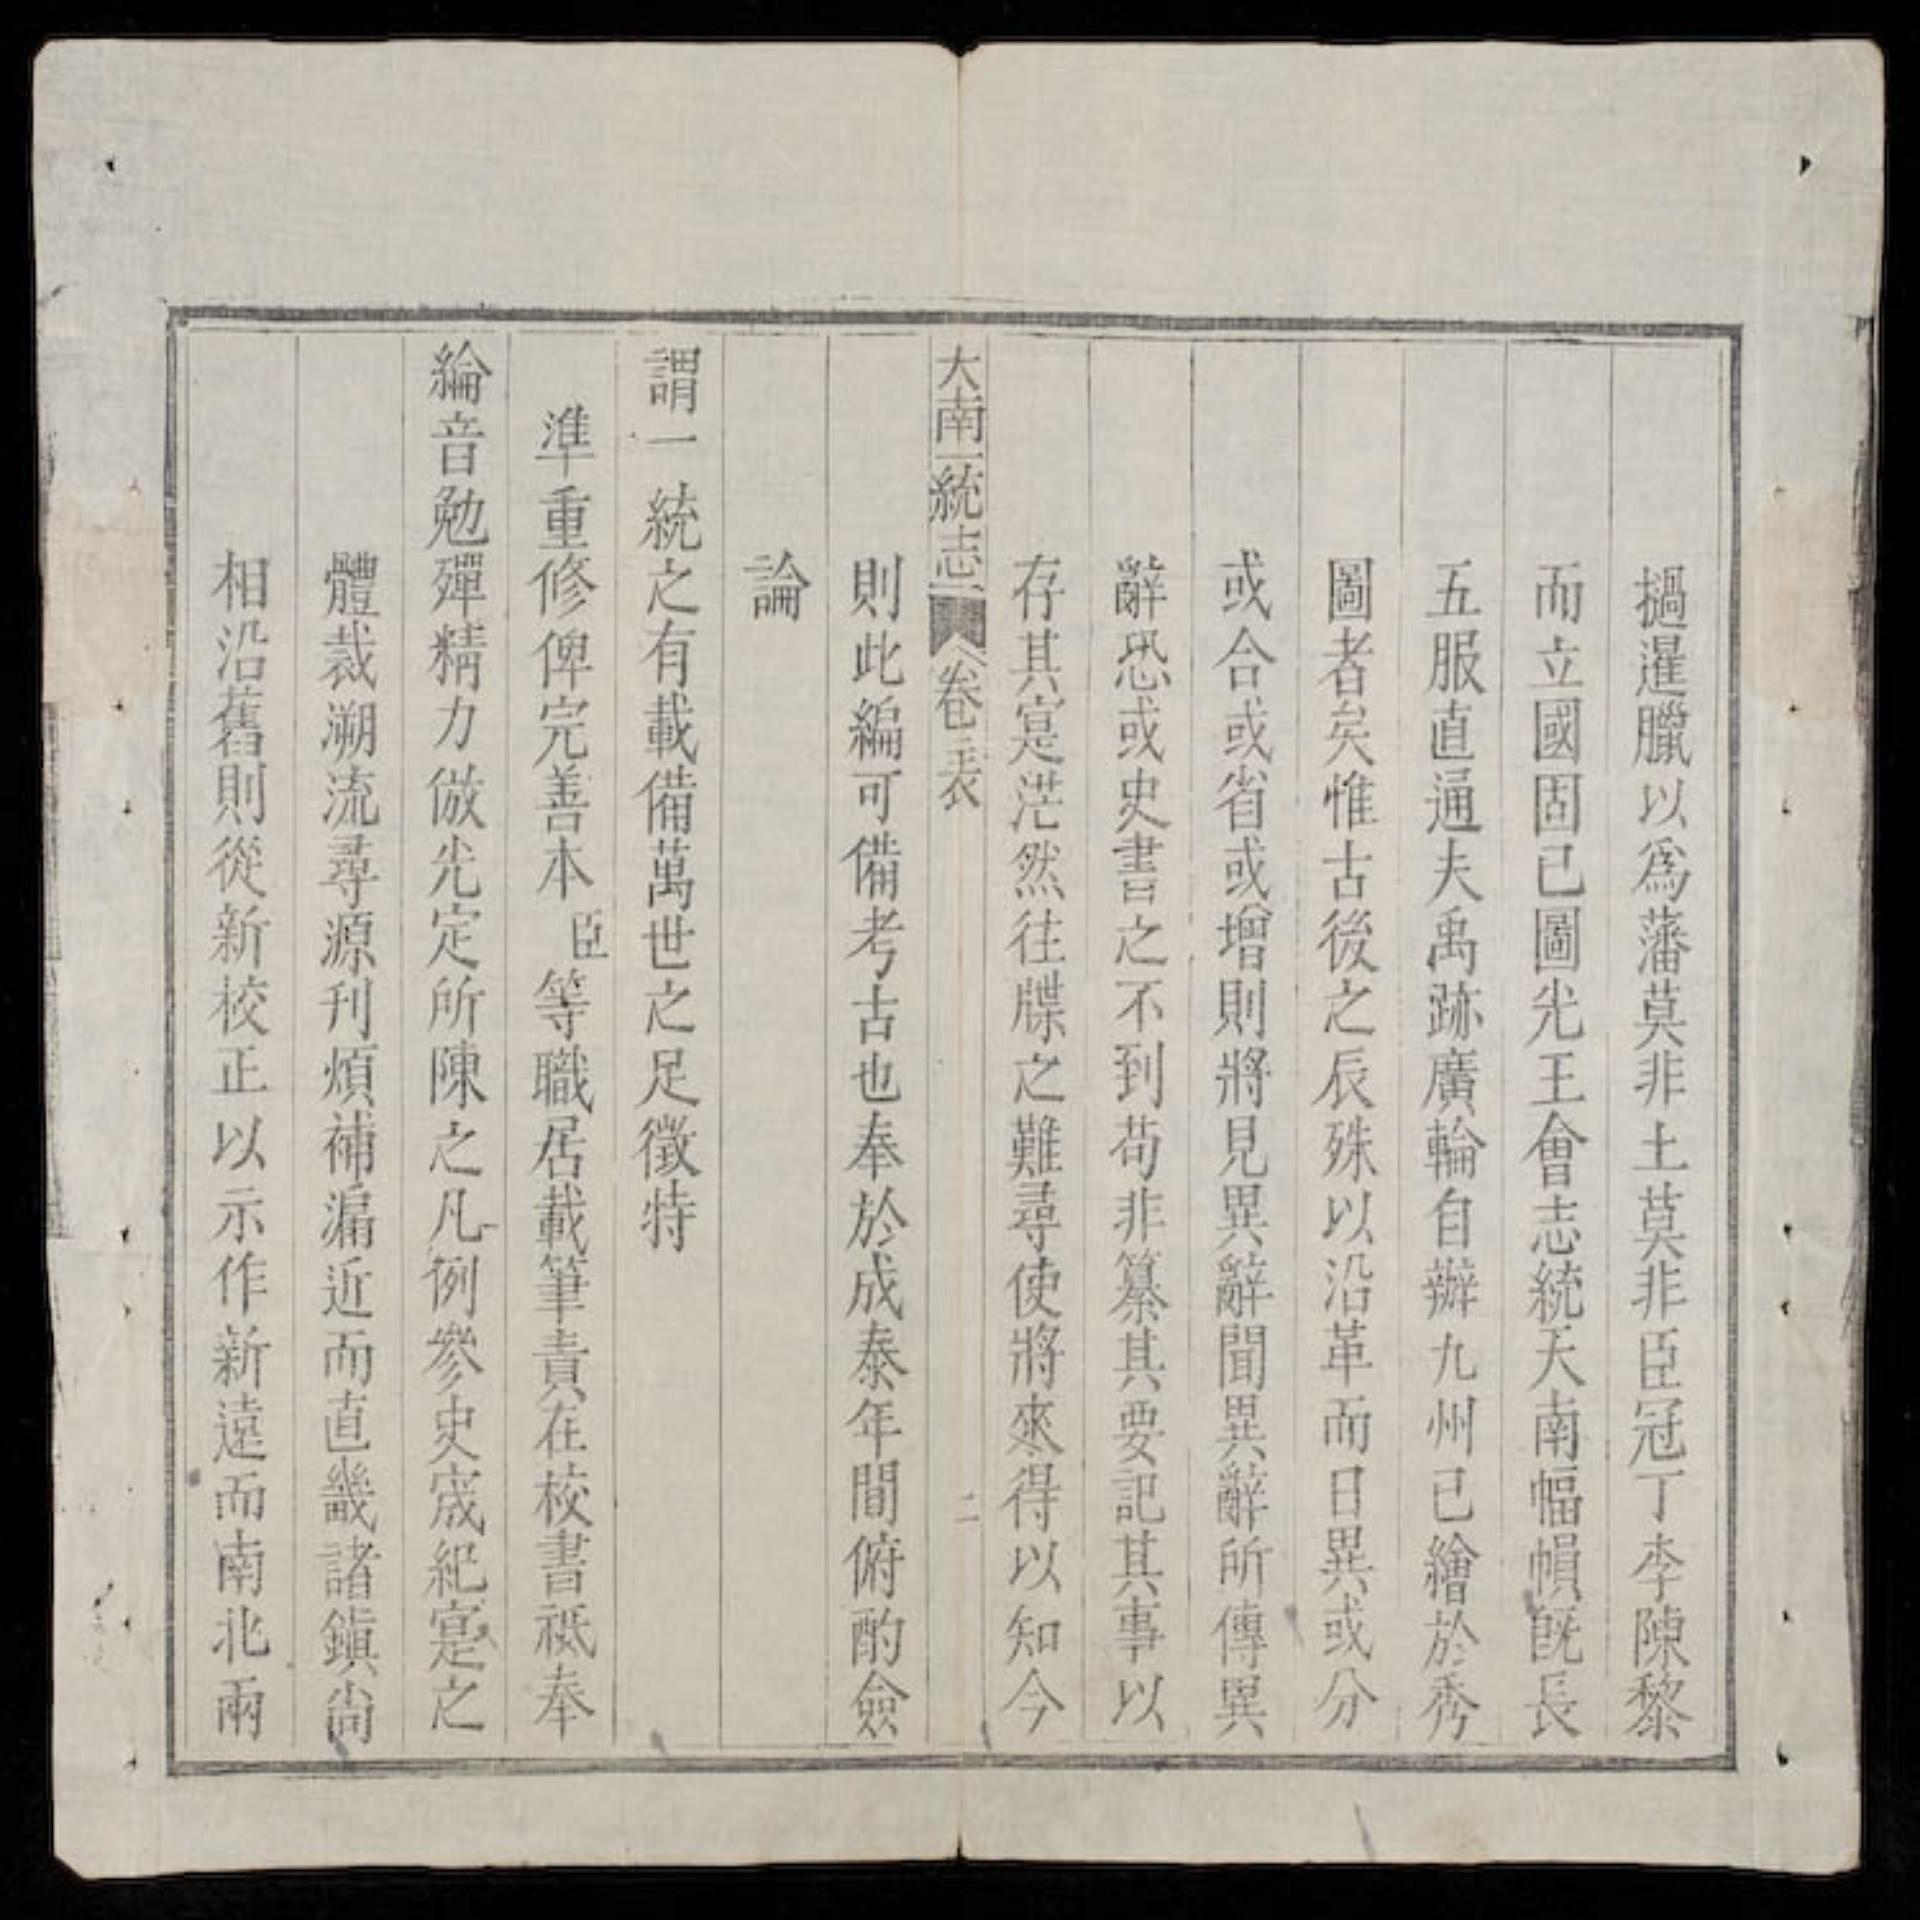 撾暹臘以爲藩莫非土莫非臣冠丁李陳黎
而立國固已圖光王會志統天南幅幀旣長
五服直通夫禹跡廣輪自辦九州已繪於秀
圖者矣惟古後之辰殊以沿革而日異或分
或合或省或增則將見異辭聞異辭所傳異
辭恐或史書之不到苟非纂其要記其事以
存其寔茫然往牒之難尋使將來得以知今
大南一統志 卷 表 二
則此編可備考古也奉於成泰年間俯酌僉
論
謂一統之有載備萬世之足徵特
準重修俾完善本臣等職居載筆責在校書祗奉
綸音勉殫精力倣光定所陳之凡例參史宬紀寔之
體裁溯流尋源刊煩補漏近而直畿諸鎭尙
相沿舊則從新校正以示作新遠而南北兩